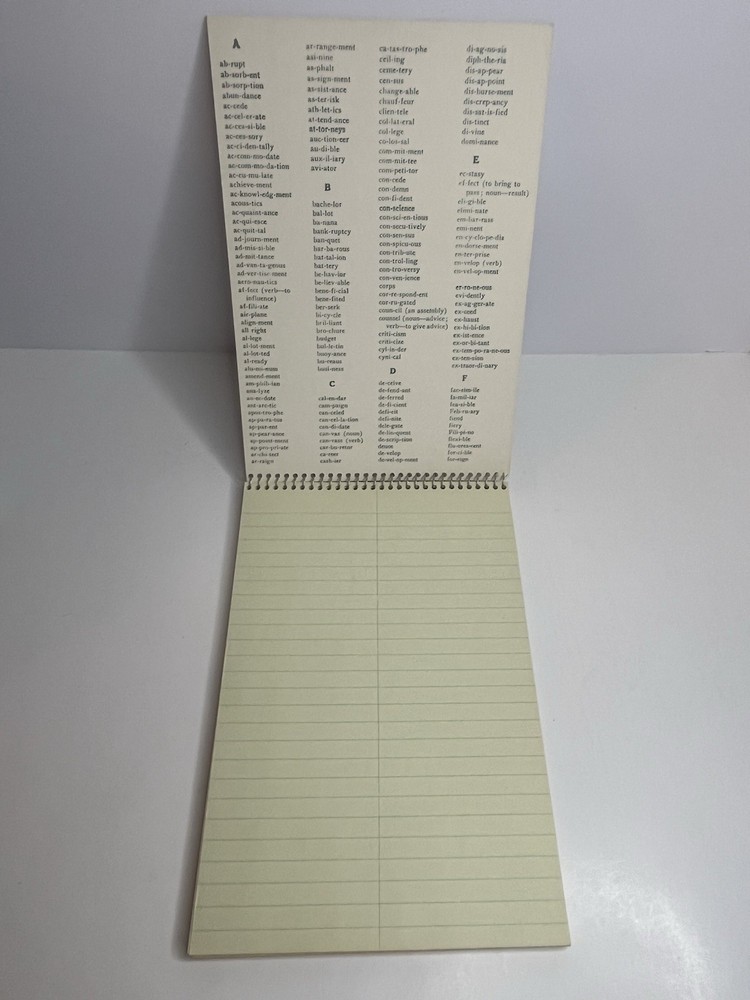 A
ab-rupt
ab-sorb-ent
ab-sorp-tion
abun-dance
ac-cede
ac-cel-er-ate
ac-ces-si-ble
ac-ces-sory
ac-ci-den-tally
ac-com-mo-date
ac-com-mo-da-tion
ac-cu-mu-late
achieve-ment
ac-knowl-edg-ment
acous-tics
ac-quaint-ance
ac-qui-esce
ac-quit-tal
ad-journ-ment
ad-mis-si-ble
ad-mit-tance
ad-van-ta-geous
ad-ver-tise-ment
aero-nau-tics
af-fect (verb—to
influence)
af-fili-ate
air-plane
align-ment
all right
al-lege
al-lot-ment
al-lot-ted
al-ready
alu-mi-num
amend-ment
am-phib-ian
ana-lyze
an-ec-dote
ant-arc-tic
apos-tro-phe
ap-pa-ra-tus
ap-par-ent
ap-pear-ance
ap-point-ment
ap-pro-pri-ate
ar-chi-tect
ar-raign
ar-range-ment
asi-nine
as-phalt
as-sign-ment
as-sist-ance
as-ter-isk
ath-let-ics
at-tend-ance
at-tor-neys
auc-tion-eer
au-di-ble
aux-il-iary
avi-ator
B
bache-lor
bal-lot
ba-nana
bank-ruptcy
ban-quet
bar-ba-rous
bat-tal-ion
bat-tery
be-hav-ior
be-liev-able
bene-fi-cial
bene-fited
ber-serk
bi-cy-cle
bril-liant
bro-chure
budget
bul-le-tin
buoy-ance
bu-reaus
busi-ness
C
cal-en-dar
cam-paign
can-celed
can-cel-la-tion
can-di-date
can-vas (noun)
can-vass (verb)
car-bu-retor
ca-reer
cash-ier
ca-tas-tro-phe
ceil-ing
ceme-tery
cen-sus
change-able
chauf-feur
clien-tele
col-lat-eral
col-lege
co-los-sal
com-mit-ment
com-mit-tee
com-peti-tor
con-cede
con-demn
con-fi-dent
con-science
con-sci-en-tious
con-secu-tively
con-sen-sus
con-spicu-ous
con-trib-ute
con-trol-ling
con-tro-versy
con-ven-ience
corps
cor-re-spond-ent
cor-ru-gated
coun-cil (an assembly)
counsel (noun—advice;
verb—to give advice)
criti-cism
criti-cize
cyl-in-der
cyni-cal
D
de-ceive
de-fend-ant
de-ferred
de-fi-cient
defi-cit
defi-nite
dele-gate
de-lin-quent
de-scrip-tion
deuce
de-velop
de-vel-op-ment
di-ag-no-sis
diph-the-ria
dis-ap-pear
dis-ap-point
dis-burse-ment
dis-crep-ancy
dis-sat-is-fied
dis-tinct
di-vine
domi-nance
E
ec-stasy
ef-fect (to bring to
pass; noun—result)
eli-gi-ble
elimi-nate
em-bar-rass
emi-nent
en-cy-clo-pe-dia
en-dorse-ment
en-ter-prise
en-velop (verb)
en-vel-op-ment
er-ro-ne-ous
evi-dently
ex-ag-ger-ate
ex-ceed
ex-haust
ex-hi-bi-tion
ex-ist-ence
ex-or-bi-tant
ex-tem-po-ra-ne-ous
ex-ten-sion
ex-traor-di-nary
F
fac-sim-ile
fa-mil-iar
fea-si-ble
Feb-ru-ary
fiend
fiery
Fili-pi-no
flexi-ble
flu-ores-cent
for-ci-ble
for-eign